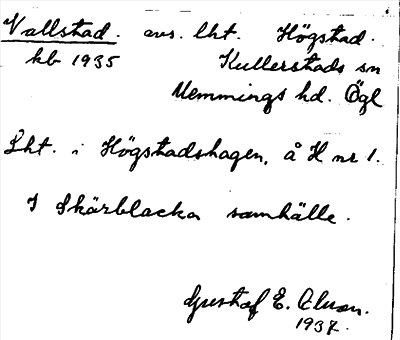 Vallstad. avs. lht. Högstad.
kb 1935 Kullerstads sn
Memmings hd. Ögl
Lht. i Högstadshagen, å H nr 1.
I Skärblacka samhälle.
Gustaf E.
1937.